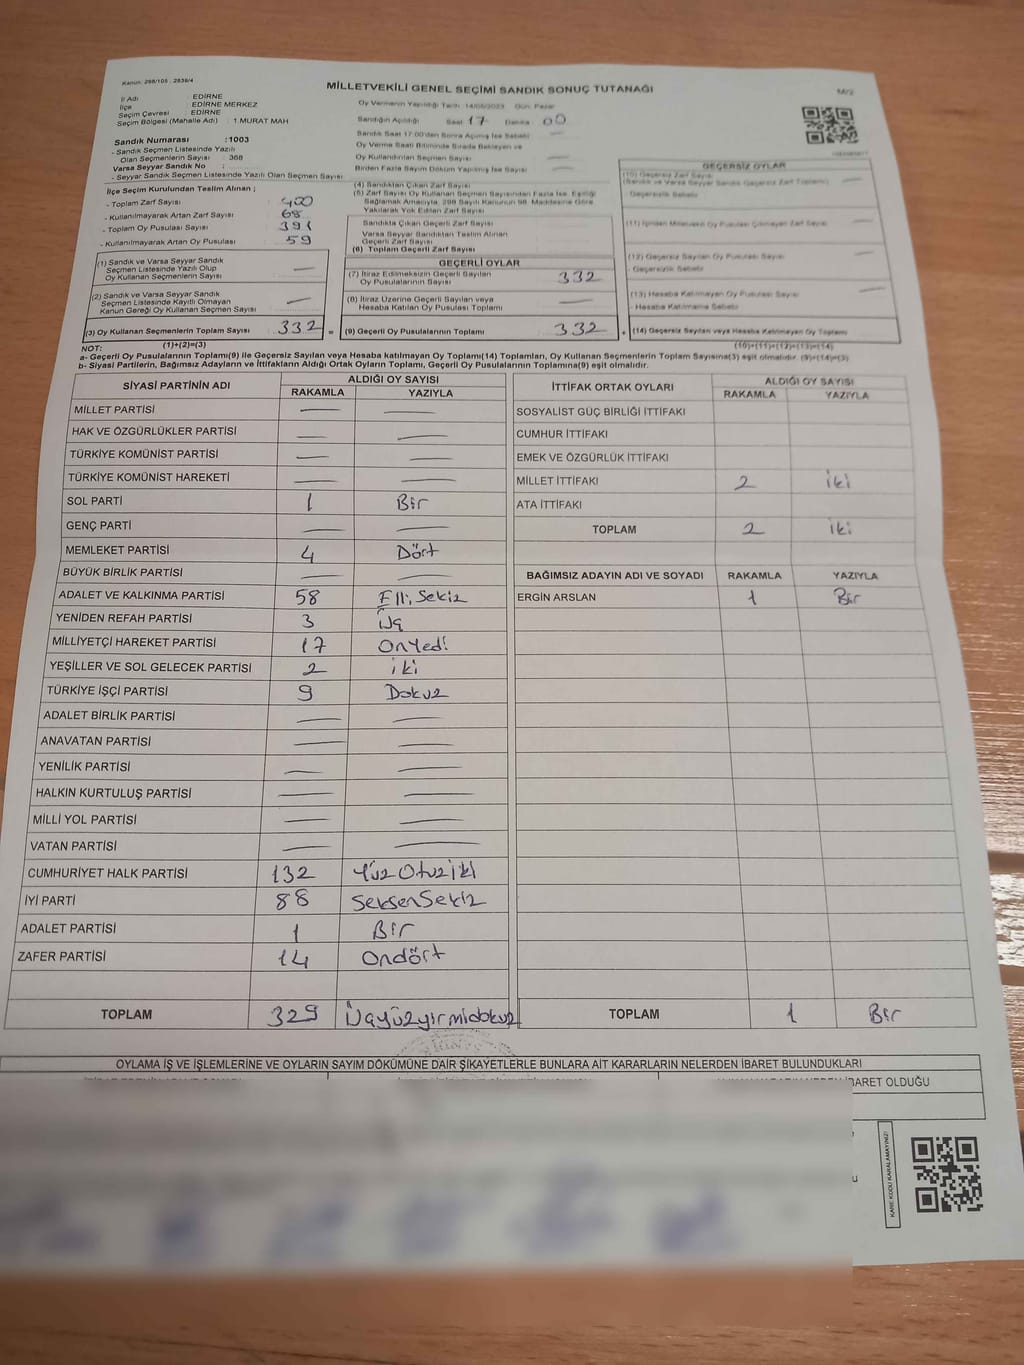 Kanun: 298/105 , 2839/4
MİLLETVEKİLİ GENEL SEÇİMİ SANDIK SONUÇ TUTANAĞI
İl Adı : EDİRNE
İlçe : EDİRNE MERKEZ
Seçim Çevresi : EDİRNE
Seçim Bölgesi (Mahalle Adı) : 1.MURAT MAH
Sandık Numarası :1003
- Sandık Seçmen Listesinde Yazılı
Olan Seçmenlerin Sayısı : 368
Varsa Seyyar Sandık No :
- Seyyar Sandık Seçmen Listesinde Yazılı Olan Seçmen Sayısı:
İlçe Seçim Kurulundan Teslim Alınan ;
- Toplam Zarf Sayısı : 400
- Kullanılmayarak Artan Zarf Sayısı : 68
- Toplam Oy Pusulası Sayısı : 391
- Kullanılmayarak Artan Oy Pusulası : 59
(1) Sandık ve Varsa Seyyar Sandık
Seçmen Listesinde Yazılı Olup
Oy Kullanan Seçmenlerin Sayısı : —
(2) Sandık ve Varsa Seyyar Sandık
Seçmen Listesinde Kayıtlı Olmayan
Kanun Gereği Oy Kullanan Seçmen Sayısı : —
(3) Oy Kullanan Seçmenlerin Toplam Sayısı : 332 =
(1)+(2)=(3)
Oy Vermenin Yapıldığı Tarih: 14/05/2023 Gün: Pazar
Sandığın Açıldığı Saat 17 Dakika 00
Sandık Saat 17:00'den Sonra Açılmış İse Sebebi: —
Oy Verme Saati Bitiminde Sırada Bekleyen ve
Oy Kullandırılan Seçmen Sayısı —
Birden Fazla Sayım Döküm Yapılmış İse Sayısı —
(4) Sandıktan Çıkan Zarf Sayısı
(5) Zarf Sayısı Oy Kullanan Seçmen Sayısından Fazla İse, Eşitliği
Sağlamak Amacıyla, 298 Sayılı Kanunun 98. Maddesine Göre
Yakılarak Yok Edilen Zarf Sayısı
Sandıkta Çıkan Geçerli Zarf Sayısı
Varsa Seyyar Sandıktan Teslim Alınan
Geçerli Zarf Sayısı
(6) Toplam Geçerli Zarf Sayısı
GEÇERLİ OYLAR
(7) İtiraz Edilmeksizin Geçerli Sayılan
Oy Pusulalarının Sayısı 332
(8) İtiraz Üzerine Geçerli Sayılan veya
Hesaba Katılan Oy Pusulası Toplamı —
(9) Geçerli Oy Pusulalarının Toplamı 332 +
M/2
GEÇERSİZ OYLAR
(10) Geçersiz Zarf Sayısı
(Sandık ve Varsa Seyyar Sandık Geçersiz Zarf Toplamı) —
- Geçersizlik Sebebi
(11) İçinden Milletvekili Oy Pusulası Çıkmayan Zarf Sayısı —
(12) Geçersiz Sayılan Oy Pusulası Sayısı —
- Geçersizlik Sebebi
(13) Hesaba Katılmayan Oy Pusulası Sayısı —
- Hesaba Katılmama Sebebi
(14) Geçersiz Sayılan veya Hesaba Katılmayan Oy Toplamı
(10)+(11)+(12)+(13)=(14)
NOT:
a- Geçerli Oy Pusulalarının Toplamı(9) ile Geçersiz Sayılan veya Hesaba katılmayan Oy Toplamı(14) Toplamları, Oy Kullanan Seçmenlerin Toplam Sayısına(3) eşit olmalıdır. (9)+(14)=(3)
b- Siyasi Partilerin, Bağımsız Adayların ve İttifakların Aldığı Oyların Toplamı, Geçerli Oy Pusulalarının Toplamına(9) eşit olmalıdır.
SİYASİ PARTİNİN ADI ALDIĞI OY SAYISI
RAKAMLA YAZIYLA
MİLLET PARTİSİ — —
HAK VE ÖZGÜRLÜKLER PARTİSİ — —
TÜRKİYE KOMÜNİST PARTİSİ — —
TÜRKİYE KOMÜNİST HAREKETİ — —
SOL PARTİ 1 Bir
GENÇ PARTİ — —
MEMLEKET PARTİSİ 4 Dört
BÜYÜK BİRLİK PARTİSİ — —
ADALET VE KALKINMA PARTİSİ 58 Elli Sekiz
YENİDEN REFAH PARTİSİ 3 Üç
MİLLİYETÇİ HAREKET PARTİSİ 17 OnYedi
YEŞİLLER VE SOL GELECEK PARTİSİ 2 iki
TÜRKİYE İŞÇİ PARTİSİ 9 Dokuz
ADALET BİRLİK PARTİSİ — —
ANAVATAN PARTİSİ — —
YENİLİK PARTİSİ — —
HALKIN KURTULUŞ PARTİSİ — —
MİLLİ YOL PARTİSİ — —
VATAN PARTİSİ — —
CUMHURİYET HALK PARTİSİ 132 Yüz Otuz iki
İYİ PARTİ 88 SeksenSekiz
ADALET PARTİSİ 1 Bir
ZAFER PARTİSİ 14 Ondört
TOPLAM 329 Üçyüzyirmidokuz
İTTİFAK ORTAK OYLARI ALDIĞI OY SAYISI
RAKAMLA YAZIYLA
SOSYALİST GÜÇ BİRLİĞİ İTTİFAKI
CUMHUR İTTİFAKI
EMEK VE ÖZGÜRLÜK İTTİFAKI
MİLLET İTTİFAKI 2 iki
ATA İTTİFAKI
TOPLAM 2 iki
BAĞIMSIZ ADAYIN ADI VE SOYADI RAKAMLA YAZIYLA
ERGİN ARSLAN 1 Bir
TOPLAM 1 Bir
OYLAMA İŞ VE İŞLEMLERİNE VE OYLARIN SAYIM DÖKÜMÜNE DAİR ŞİKAYETLERLE BUNLARA AİT KARARLARIN NELERDEN İBARET BULUNDUKLARI
İBARET OLDUĞU
KARE KODU KARALAMAYINIZ!